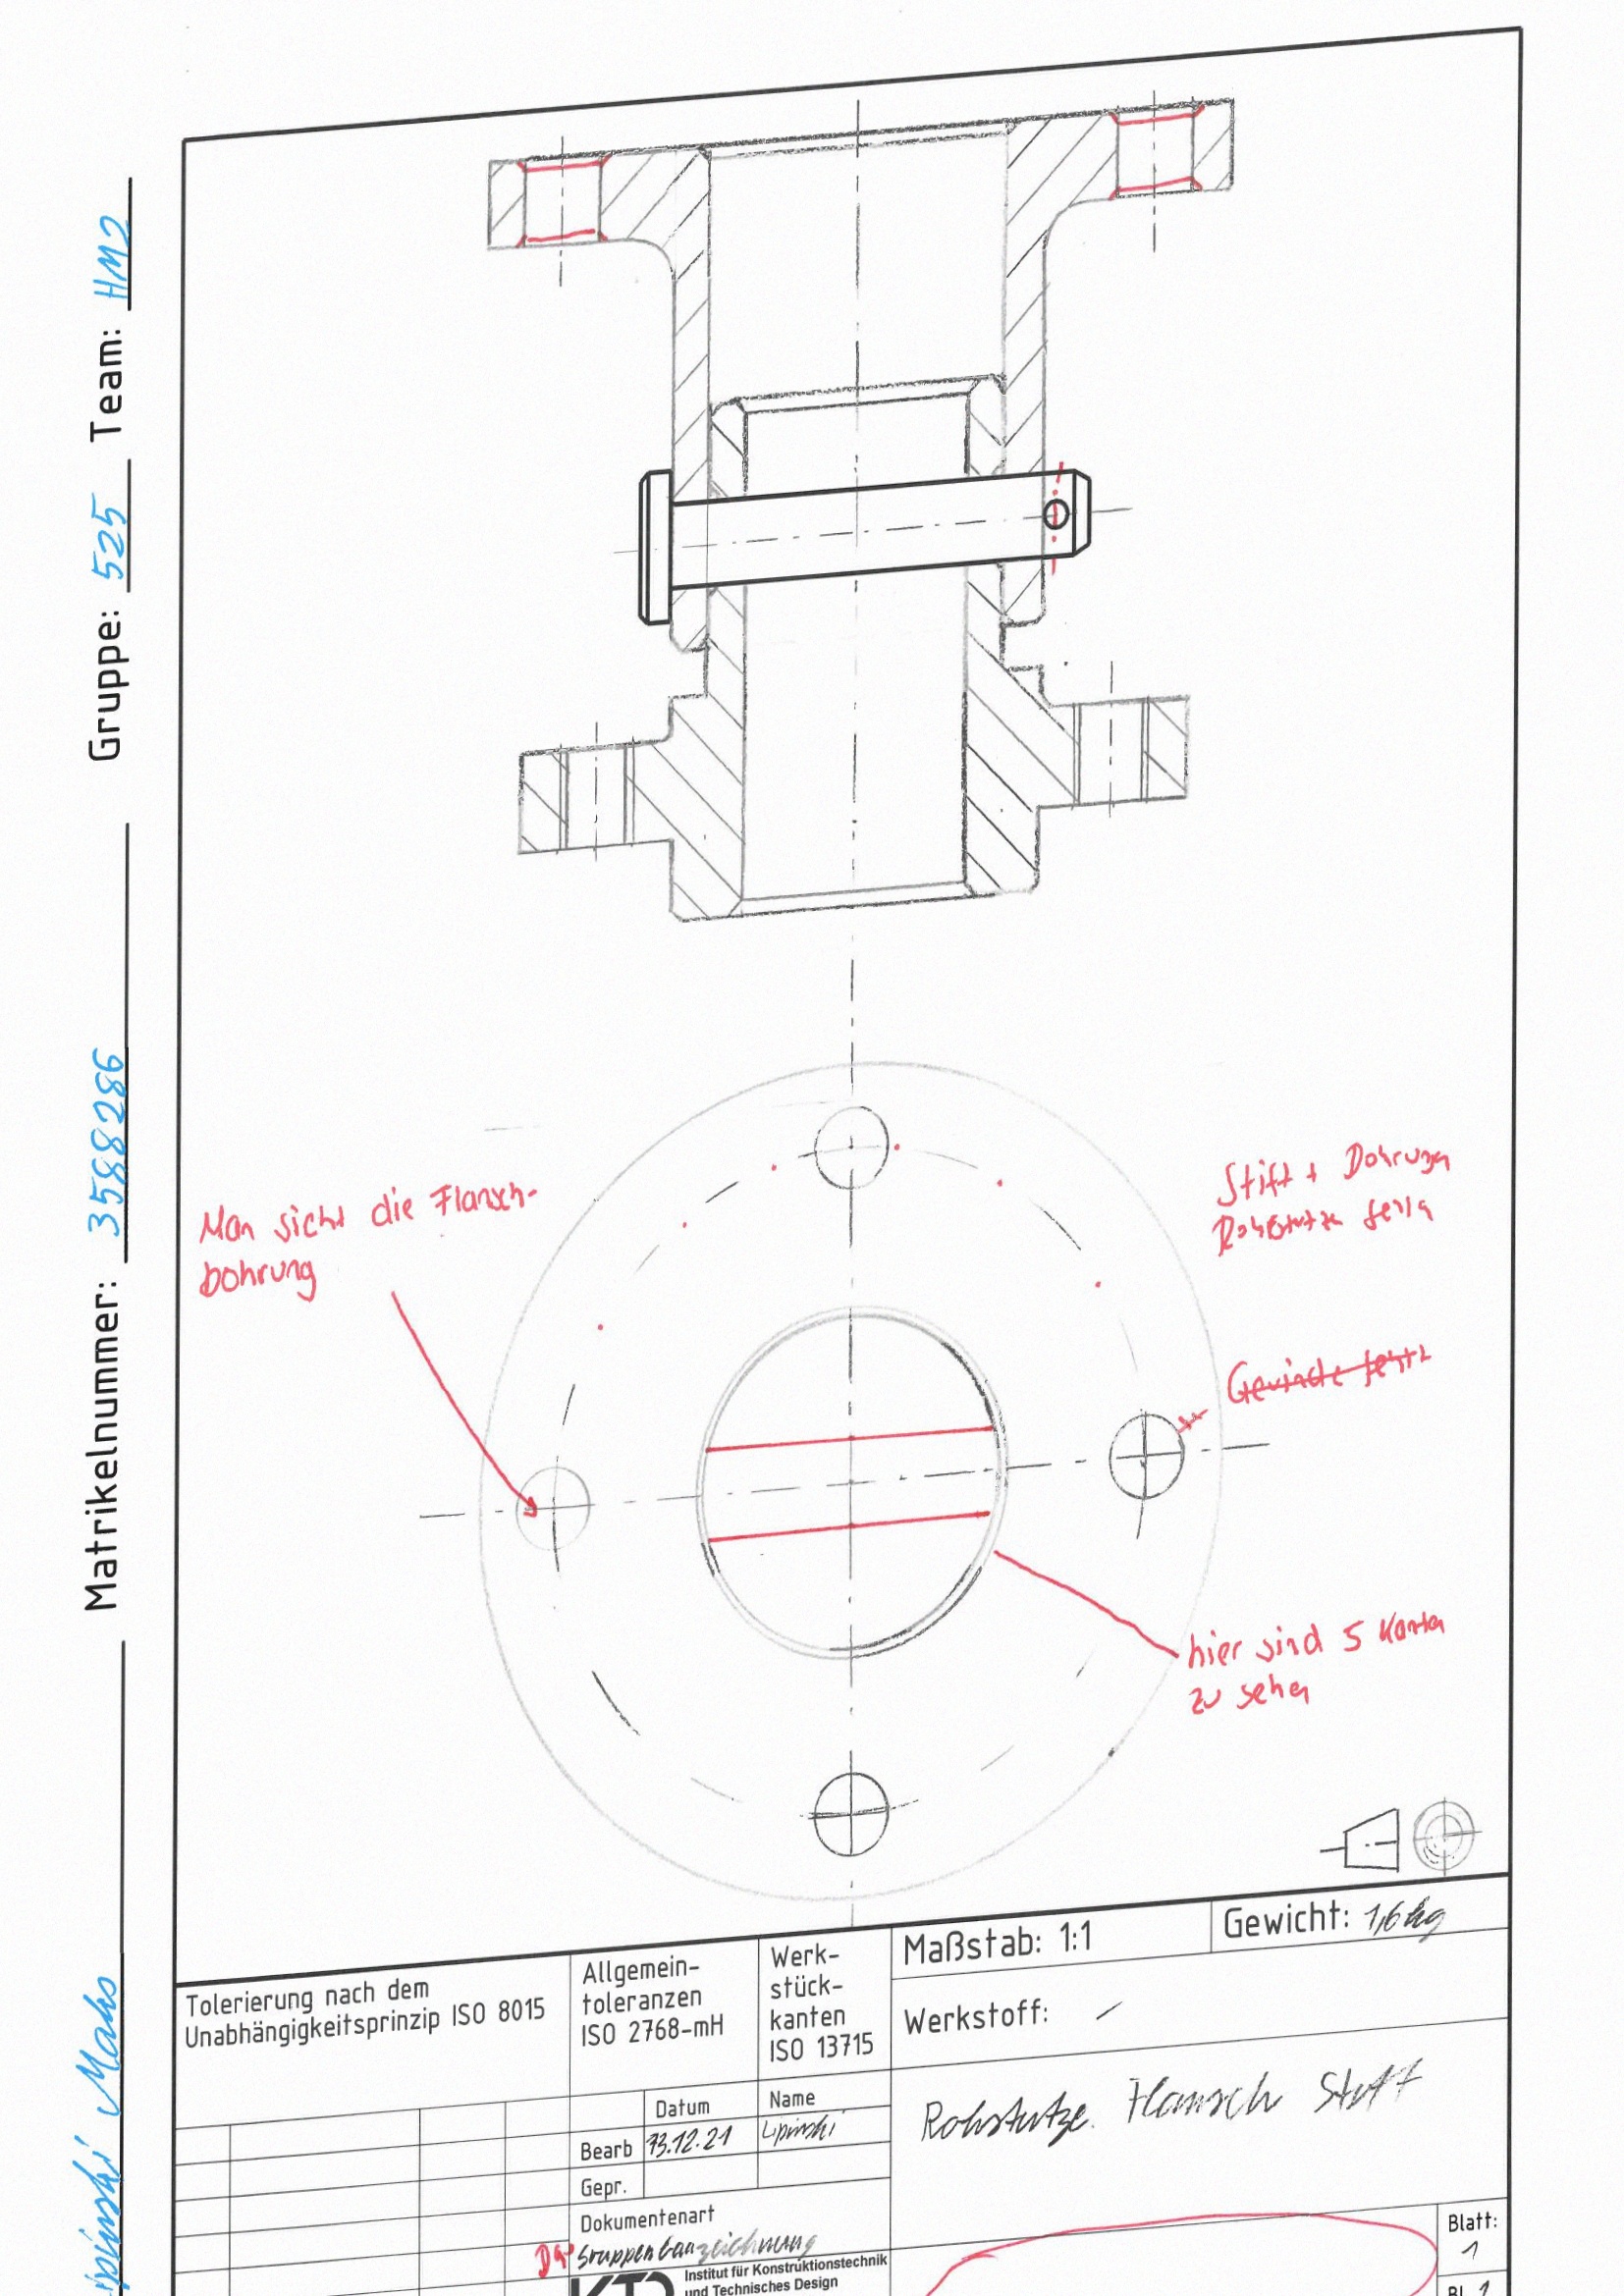 Gruppe: 525 Team: HM2
Matrikelnummer: 3588286
Man sieht die Flansch-
bohrung
Stift +
Gewinde fehlt
hier sind 5 Kanten
zu sehen
Maßstab: 1:1
Gewicht: 1,6 kg
Tolerierung nach dem
Unabhängigkeitsprinzip ISO 8015
Allgemein-
toleranzen
ISO 2768-mH
Werk-
stück-
kanten
ISO 13715
Werkstoff: –
Datum
Name
Bearb
13.12.21
Lipinski
Gepr.
Rohrstutze. Flansch Stift
Dokumentenart
Gruppenbauzeichnung
Institut für Konstruktionstechnik
und Technisches Design
Blatt:
1